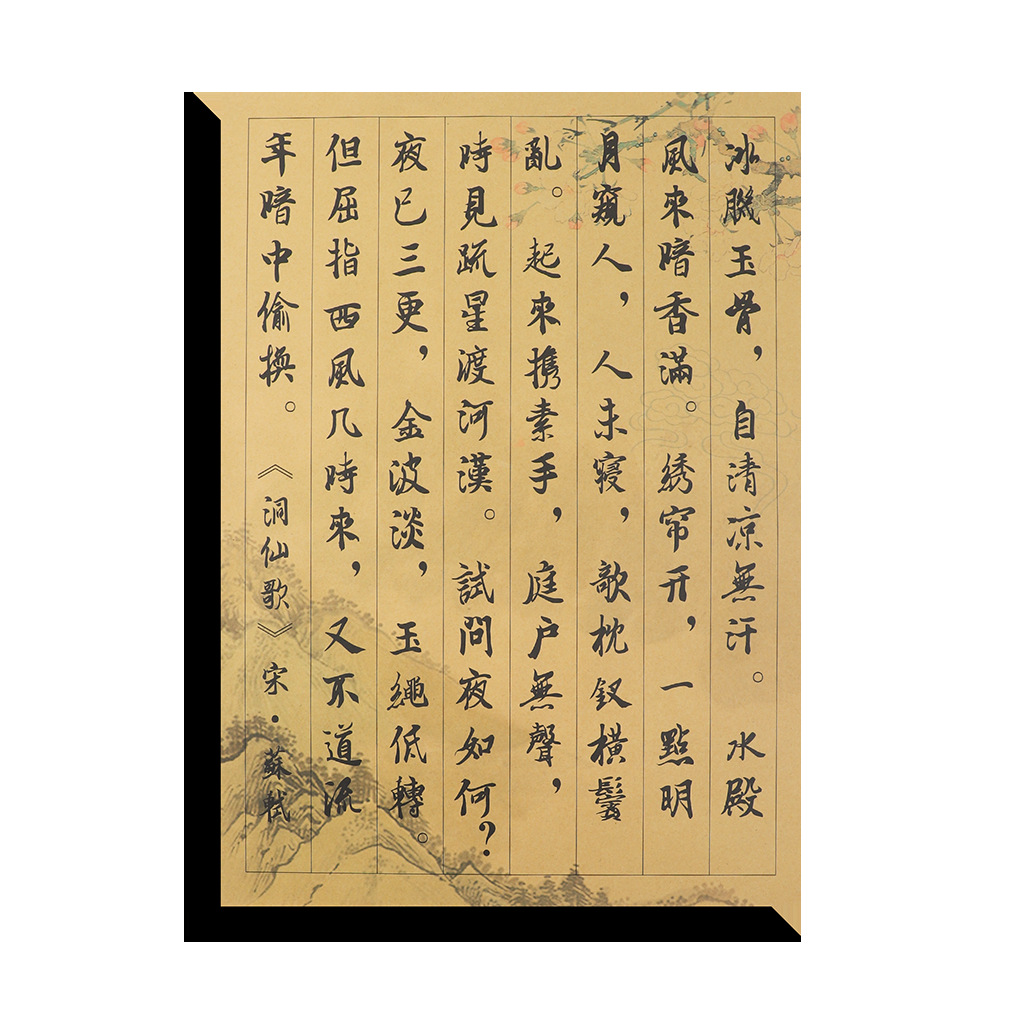 冰肌玉骨，自清凉無汗。水殿
風來暗香滿。綉帘开，一點明
月窺人，人未寝，歌枕釵橫鬢
亂。起來携素手，庭户無聲，
時見疏星渡河漢。試問夜如何？
夜已三更，金波淡，玉繩低轉。
但屈指西風几時來，又不道流
年暗中偷換。《洞仙歌》宋·蘇軾